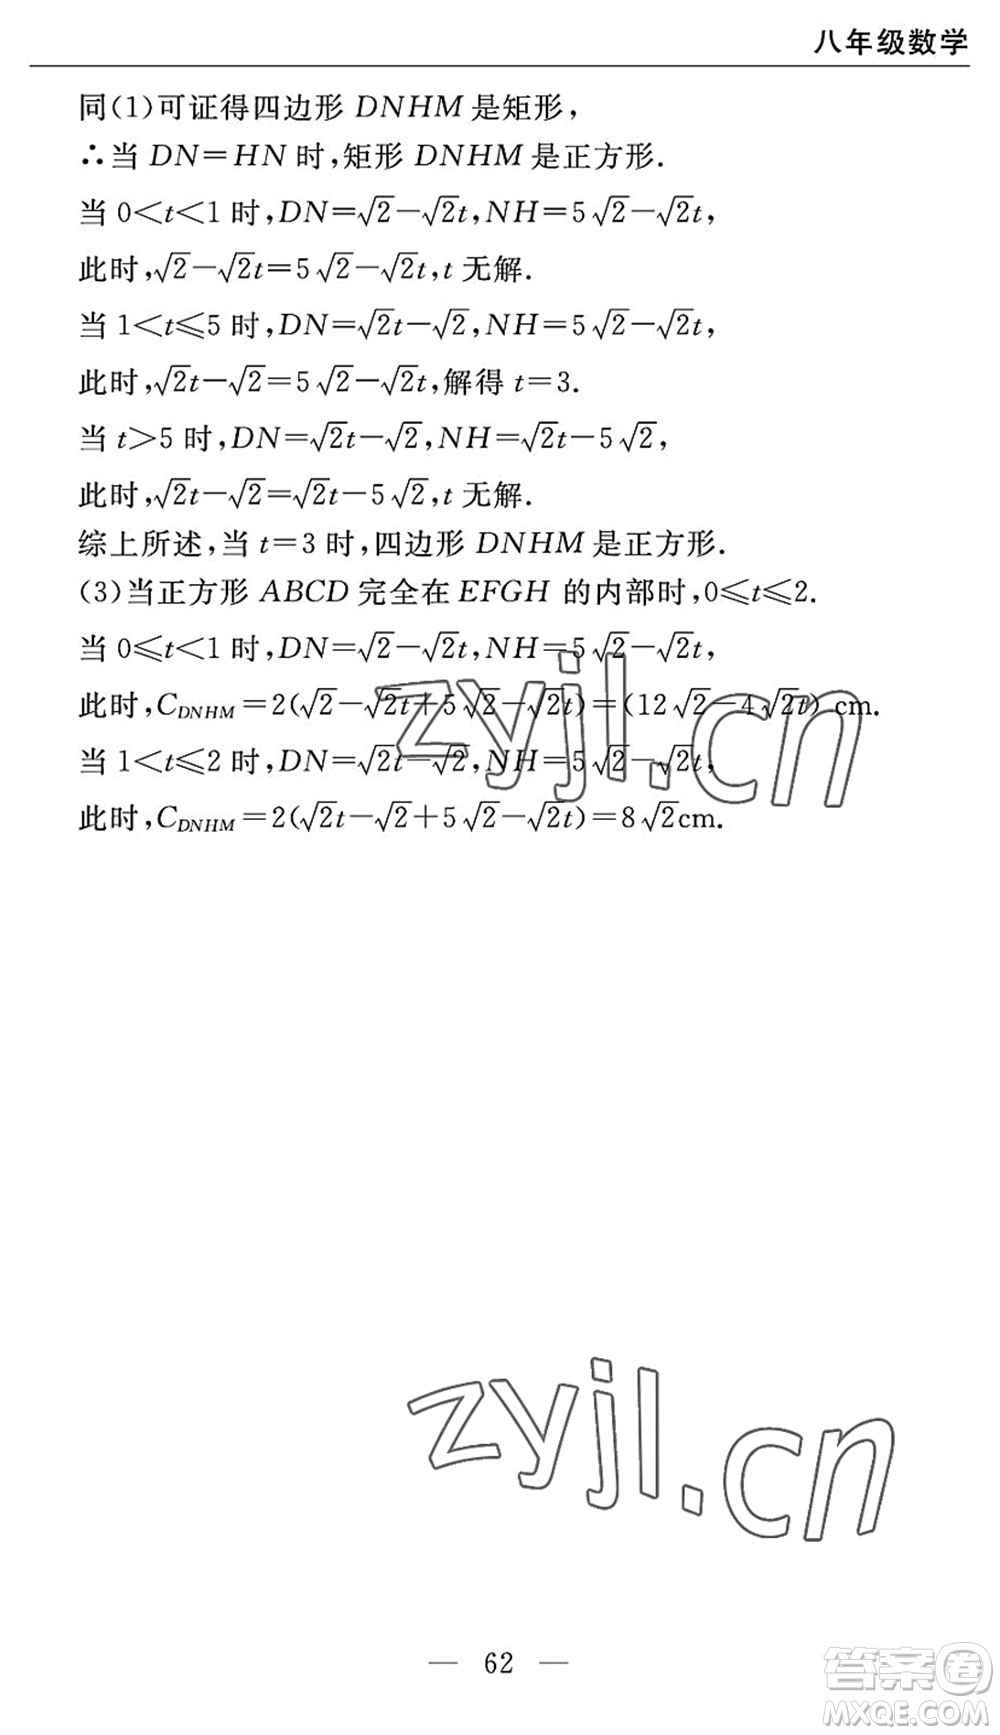 八年级数学
同(1)可证得四边形 DNHM 是矩形,
∴当 DN=HN 时,矩形 DNHM 是正方形.
当 0<t<1 时,DN=√2-√2t,NH=5√2-√2t,
此时,√2-√2t=5√2-√2t,t 无解.
当 1<t≤5 时,DN=√2t-√2,NH=5√2-√2t,
此时,√2t-√2=5√2-√2t,解得 t=3.
当 t>5 时,DN=√2t-√2,NH=√2t-5√2,
此时,√2t-√2=√2t-5√2,t 无解.
综上所述,当 t=3 时,四边形 DNHM 是正方形.
(3)当正方形 ABCD 完全在 EFGH 的内部时,0≤t≤2.
当 0≤t<1 时,DN=√2-√2t,NH=5√2-√2t,
此时,C_DNHM=2(√2-√2t+5√2-√2t)=(12√2-4√2t) cm.
当 1<t≤2 时,DN=√2t-√2,NH=5√2-√2t,
此时,C_DNHM=2(√2t-√2+5√2-√2t)=8√2cm.
zyjl.cn
zyjl.cn
— 62 —
答案卷
MXQE.COM